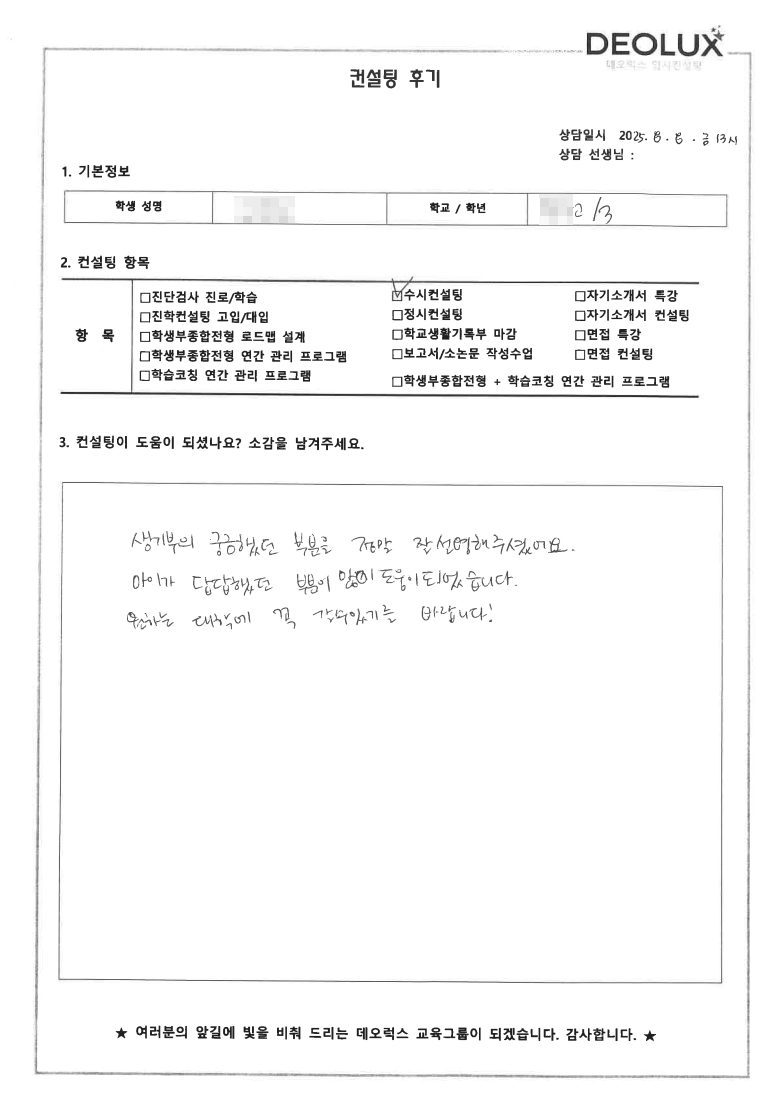 DEOLUX
데오럭스 입시컨설팅
컨설팅 후기
상담일시 2025. 8. 8. 금 13시
상담 선생님 :
1. 기본정보
학생 성명
학교 / 학년 고/3
2. 컨설팅 항목
항 목
□진단검사 진로/학습 ☑수시컨설팅 □자기소개서 특강
□진학컨설팅 고입/대입 □정시컨설팅 □자기소개서 컨설팅
□학생부종합전형 로드맵 설계 □학교생활기록부 마감 □면접 특강
□학생부종합전형 연간 관리 프로그램 □보고서/소논문 작성수업 □면접 컨설팅
□학습코칭 연간 관리 프로그램 □학생부종합전형 + 학습코칭 연간 관리 프로그램
3. 컨설팅이 도움이 되셨나요? 소감을 남겨주세요.
생기부의 궁금했던 부분을 정말 잘 설명해주셨어요.
아이가 답답했던 부분이 많이 도움이 되었습니다.
원하는 대학에 꼭 갈수있기를 바랍니다!
★ 여러분의 앞길에 빛을 비춰 드리는 데오럭스 교육그룹이 되겠습니다. 감사합니다. ★